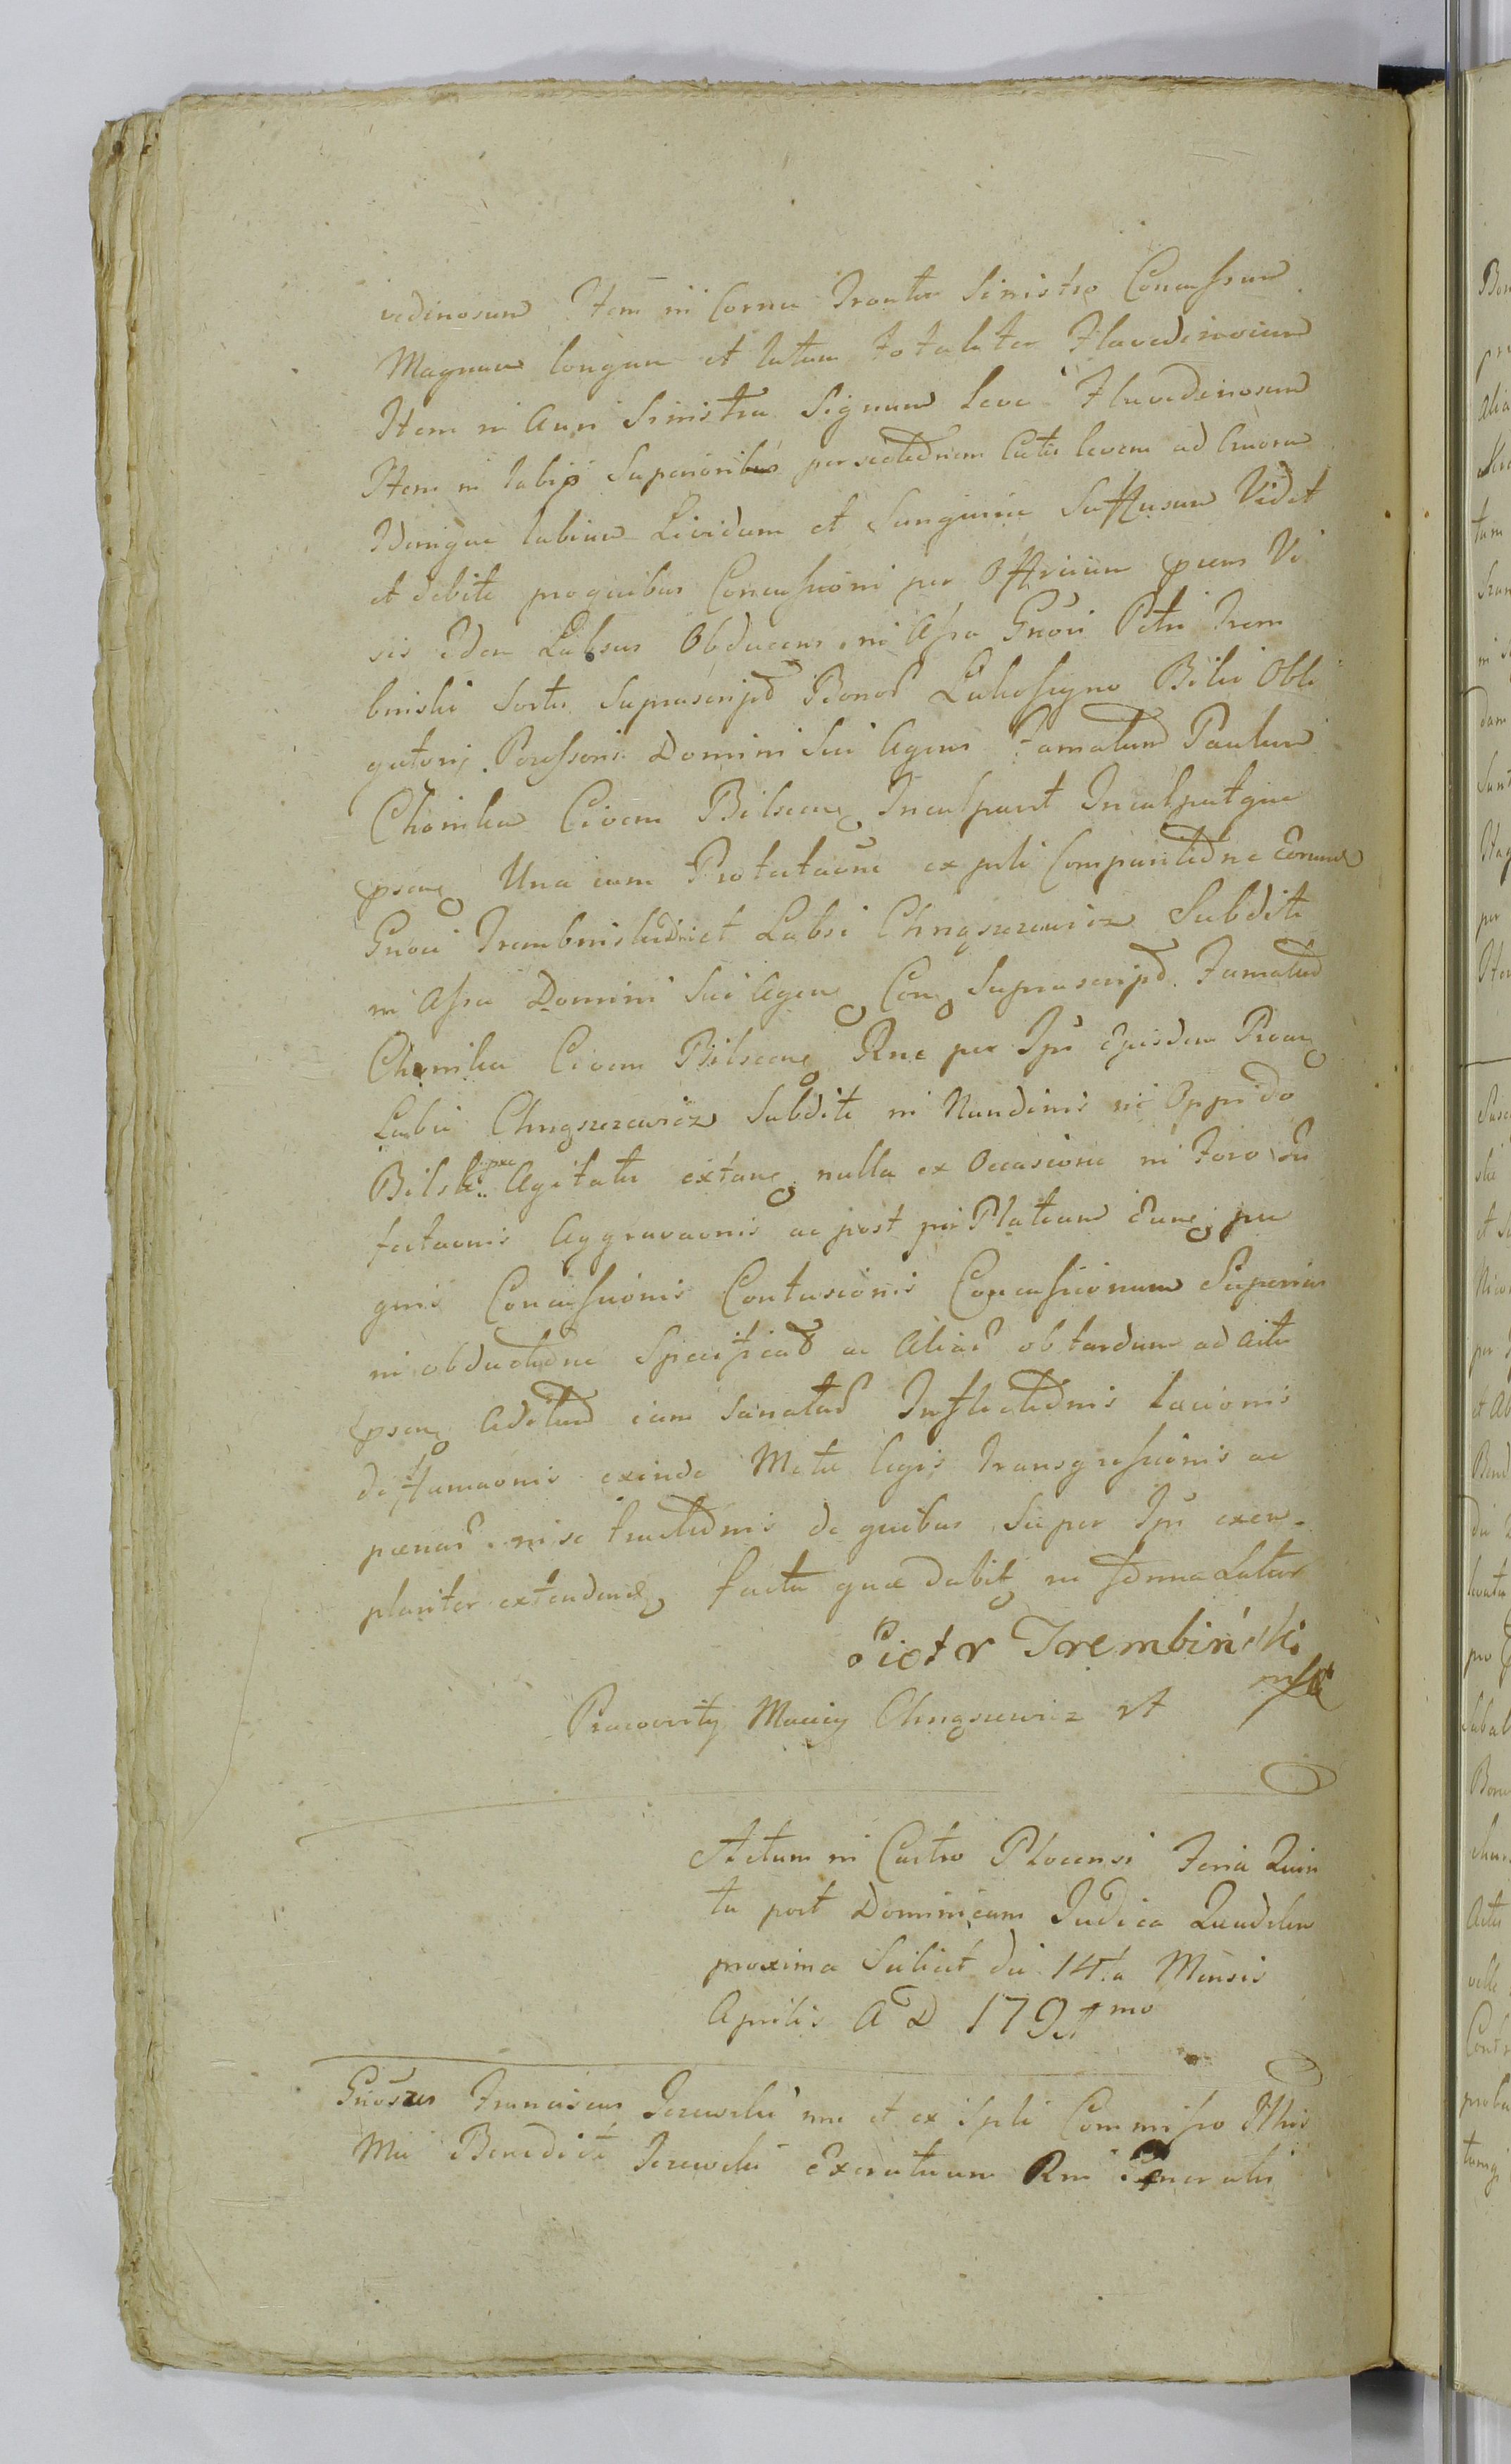 vedinosum Item in Cornu Frontis Sinistro Concussum
Magnum longum et latum totaliter Flavedinosum
Item in Auri Sinistra Signum leve Flavedinosum
Item in labijs Superioribus persectednem Cutis levem ad Cruorem
Idemque labium Lividum et Sanguine Suffusum Videt
et debite pro quibus Concussioni per Officium psens Vi
sis Idem Labsus Obducens in Assa Gnosi Petri Trem
binski Sortis Suprascriptd Bonor Lukoszyno Bilsi Obli
gatorij Possessoris Domini Sui Agens Famatum Paulum
Chomika Civem Bilscen Inculpavit Inculpatque
psens Una cum Protestaone ex pli Comparitidne Eorund
Gnosi Trembinski et Labsi Chrgszczewicz Subditi
in Assa Domini Sui Agen Con Suprascriptd Famatum
Chomika Civem Bilscen Rne per Ipm Ejusdem Provi
Labsi Chrgszczewicz Subditi in Nundinis in Oppido
Bilsk pre Agitatis extan nulla ex Occasione in Foro In
festaonis Aggravaonis ac post per Plateam Eund pu
gnis Concussionis Contusionis Concussionum Superius
in obductedne Specificatd ac Aliar ob tardum ad acta
psens Aditum iam Sanatar Inflictednis lacionis
diffamaonis exinde Metu legis transgressionis ac
poenar in se tractednis de quibus Super Ipm exem
plariter extenden facta quae dabit in forma Latius
Piotr Trembiński
mp
Pracowity Maciey Chrgszcewicz xt
Actum in Castro Plocensi Feria Quin
ta post Dominicam Judica Quadslem
proxima Scilicet die 14ta Mensis
Aprilis A D 1791mo
Gnosus Franciscus Jezewski nne et ex Spli Commisso Mthis
Mci Benedicti Jezewski Exercituum Rni Generalis